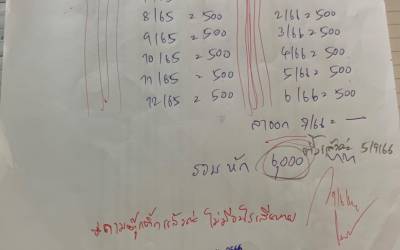 8/65 = 500
9/65 = 500
10/65 = 500
11/65 = 500
12/65 = 500
2/66 = 500
3/66 = 500
4/66 = 500
5/66 = 500
6/66 = 500
ลาออก 7/66 = —
รวม หัก 6,000
5/9/66
ไม่มีอะไรเสียหาย